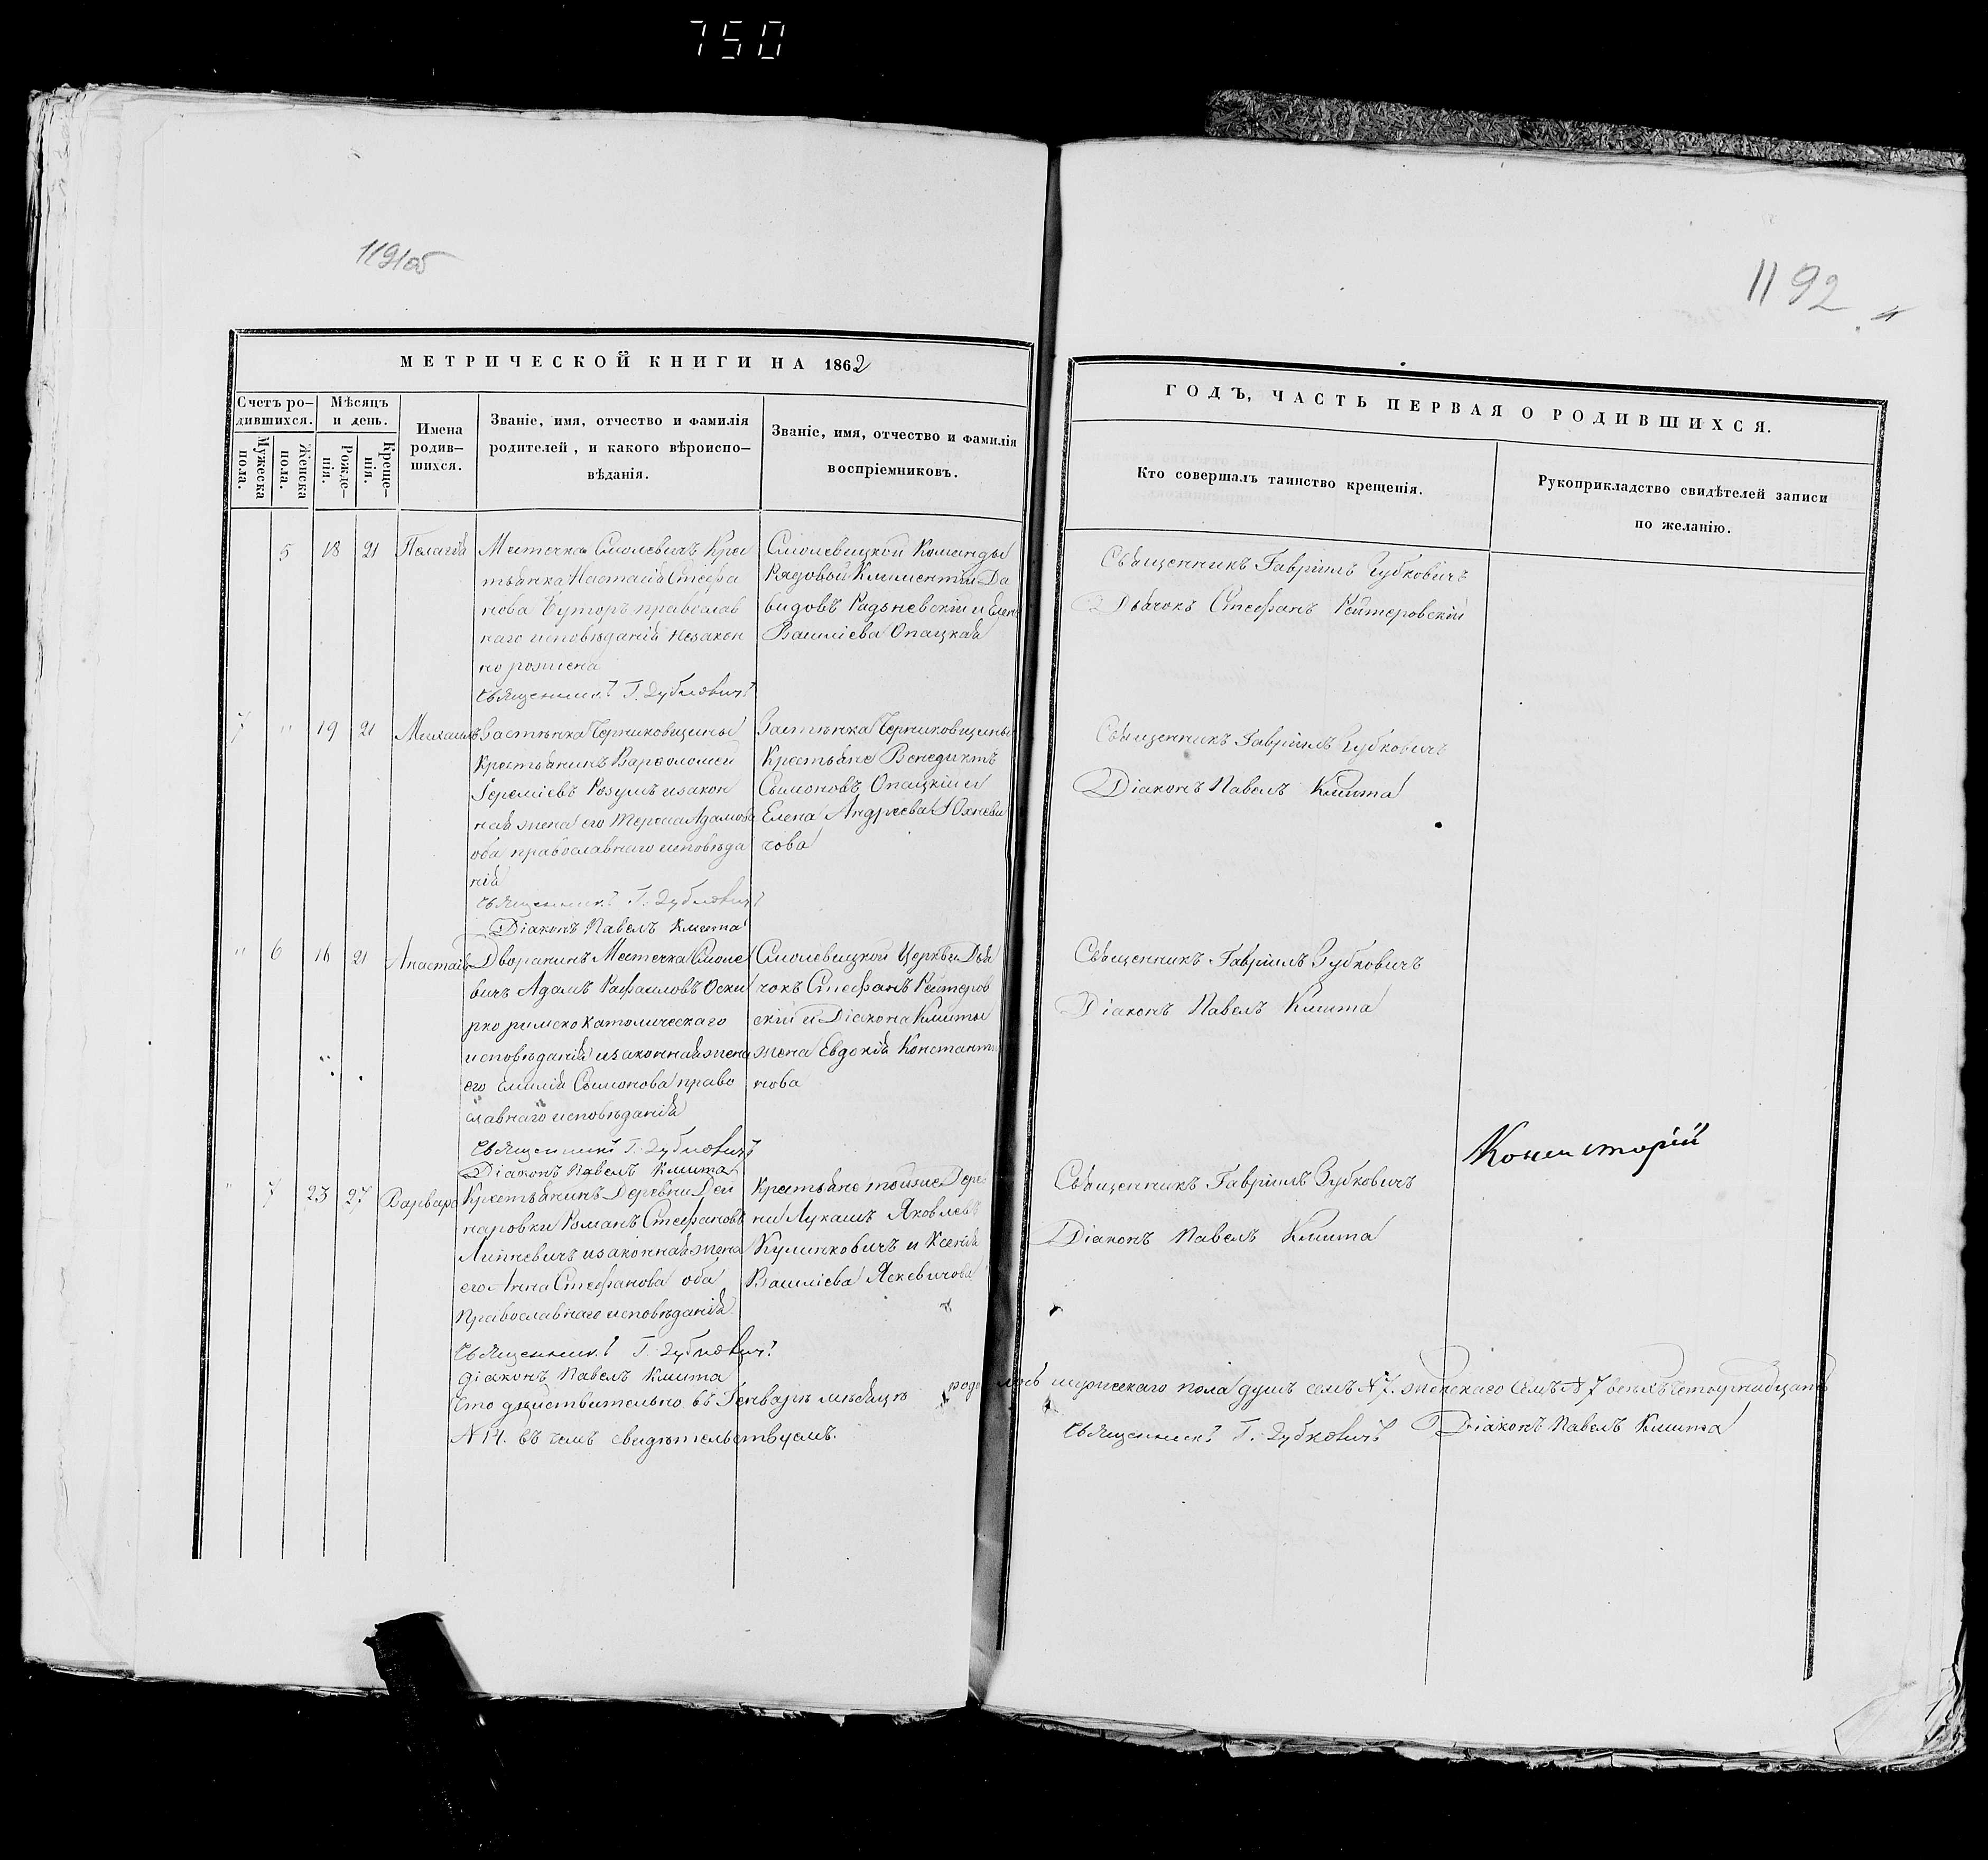 750
1191об
1192
МЕТРИЧЕСКОЙ КНИГИ НА 1862
Счетъ ро-
дившихся.
Мужеска
пола.
Женска
пола.
Мѣсяцъ
и день.
Рожде-
нія.
Креще-
нія.
Имена
родив-
шихся.
Званіе, имя, отчество и фамилія
родителей, и какого вѣроиспо-
вѣданія.
Званіе, имя, отчество и фамилія
воспріемниковъ.
ГОДЪ, ЧАСТЬ ПЕРВАЯ О РОДИВШИХСЯ.
Кто совершалъ таинство крещенія.
Рукоприкладство свидѣтелей записи
по желанію.
5 18 21 Пелагія
Местечка Смолевичъ Крес
тьянка Настасія Стефа
нова Буторъ православ
наго исповѣданія незакон
но рожжена
Священникъ Г. Зубковичъ
Смолевицкой Команды
Рядовой Климентій Да
видовъ Радзневскій и Елена
Василіева Опацкая
Священникъ Гавріилъ Зубковичъ
Дьячокъ Стефанъ Рейтеровскій
7 " 19 21 Михаилъ
Застѣнка Черниковщины
Крестьянинъ Варѳоломей
Іереміевъ Розумъ изакон
ная жена его Тереса Адамова
оба православнаго исповѣда
нія
Священникъ Г. Зубковичъ
Діаконъ Павелъ Кмита
Застѣнка Черниковщины
Крестьяне Венедиктъ
Сымоновъ Опацкій и
Елена Андреева Юхневи
чова
Священникъ Гавріилъ Зубковичъ
Діаконъ Павелъ Кмита
" 6 16 21 Анастасія
Дворанинъ Местечка Смоле
вичъ Адамъ Рафаиловъ Оски
рко римско католическаго
исповѣданія изаконная жена
его Емилія Сымонова право
славнаго исповѣданія
Священникъ Г. Зубковичъ
Діаконъ Павелъ Кмита
Смолевицкой Церкви Дья
чокъ Стефанъ Рейтеров
скій и Діакона Кмиты
жена Евдокія Константи
нова
Священникъ Гавріилъ Зубковичъ
Діаконъ Павелъ Кмита
" 7 23 27 Варвара
Крестьянинъ Деревни Дей
наровки Романъ Стефановъ
изаконная жена
его Анна Стефанова оба
Православнаго исповѣданія
Священникъ Г. Зубковичъ
діаконъ Павелъ Кмита
Крестьяне тойже Дерев
ни Лукашъ Яковлевъ
Кулинковичъ и Ксенія
Василіева Яскевичова
Священникъ Гавріилъ Зубковичъ
Діаконъ Павелъ Кмита
Консисторіи
Что дѣйствительно въ Генварѣ мѣсяцѣ родилось мужескаго пола душъ семъ N 7. женскаго семъ N 7 всѣхъ четырнадцать
N 14. въ чемъ свидѣтельствуемъ.
Священникъ Г. Зубковичъ Діаконъ Павелъ Кмита